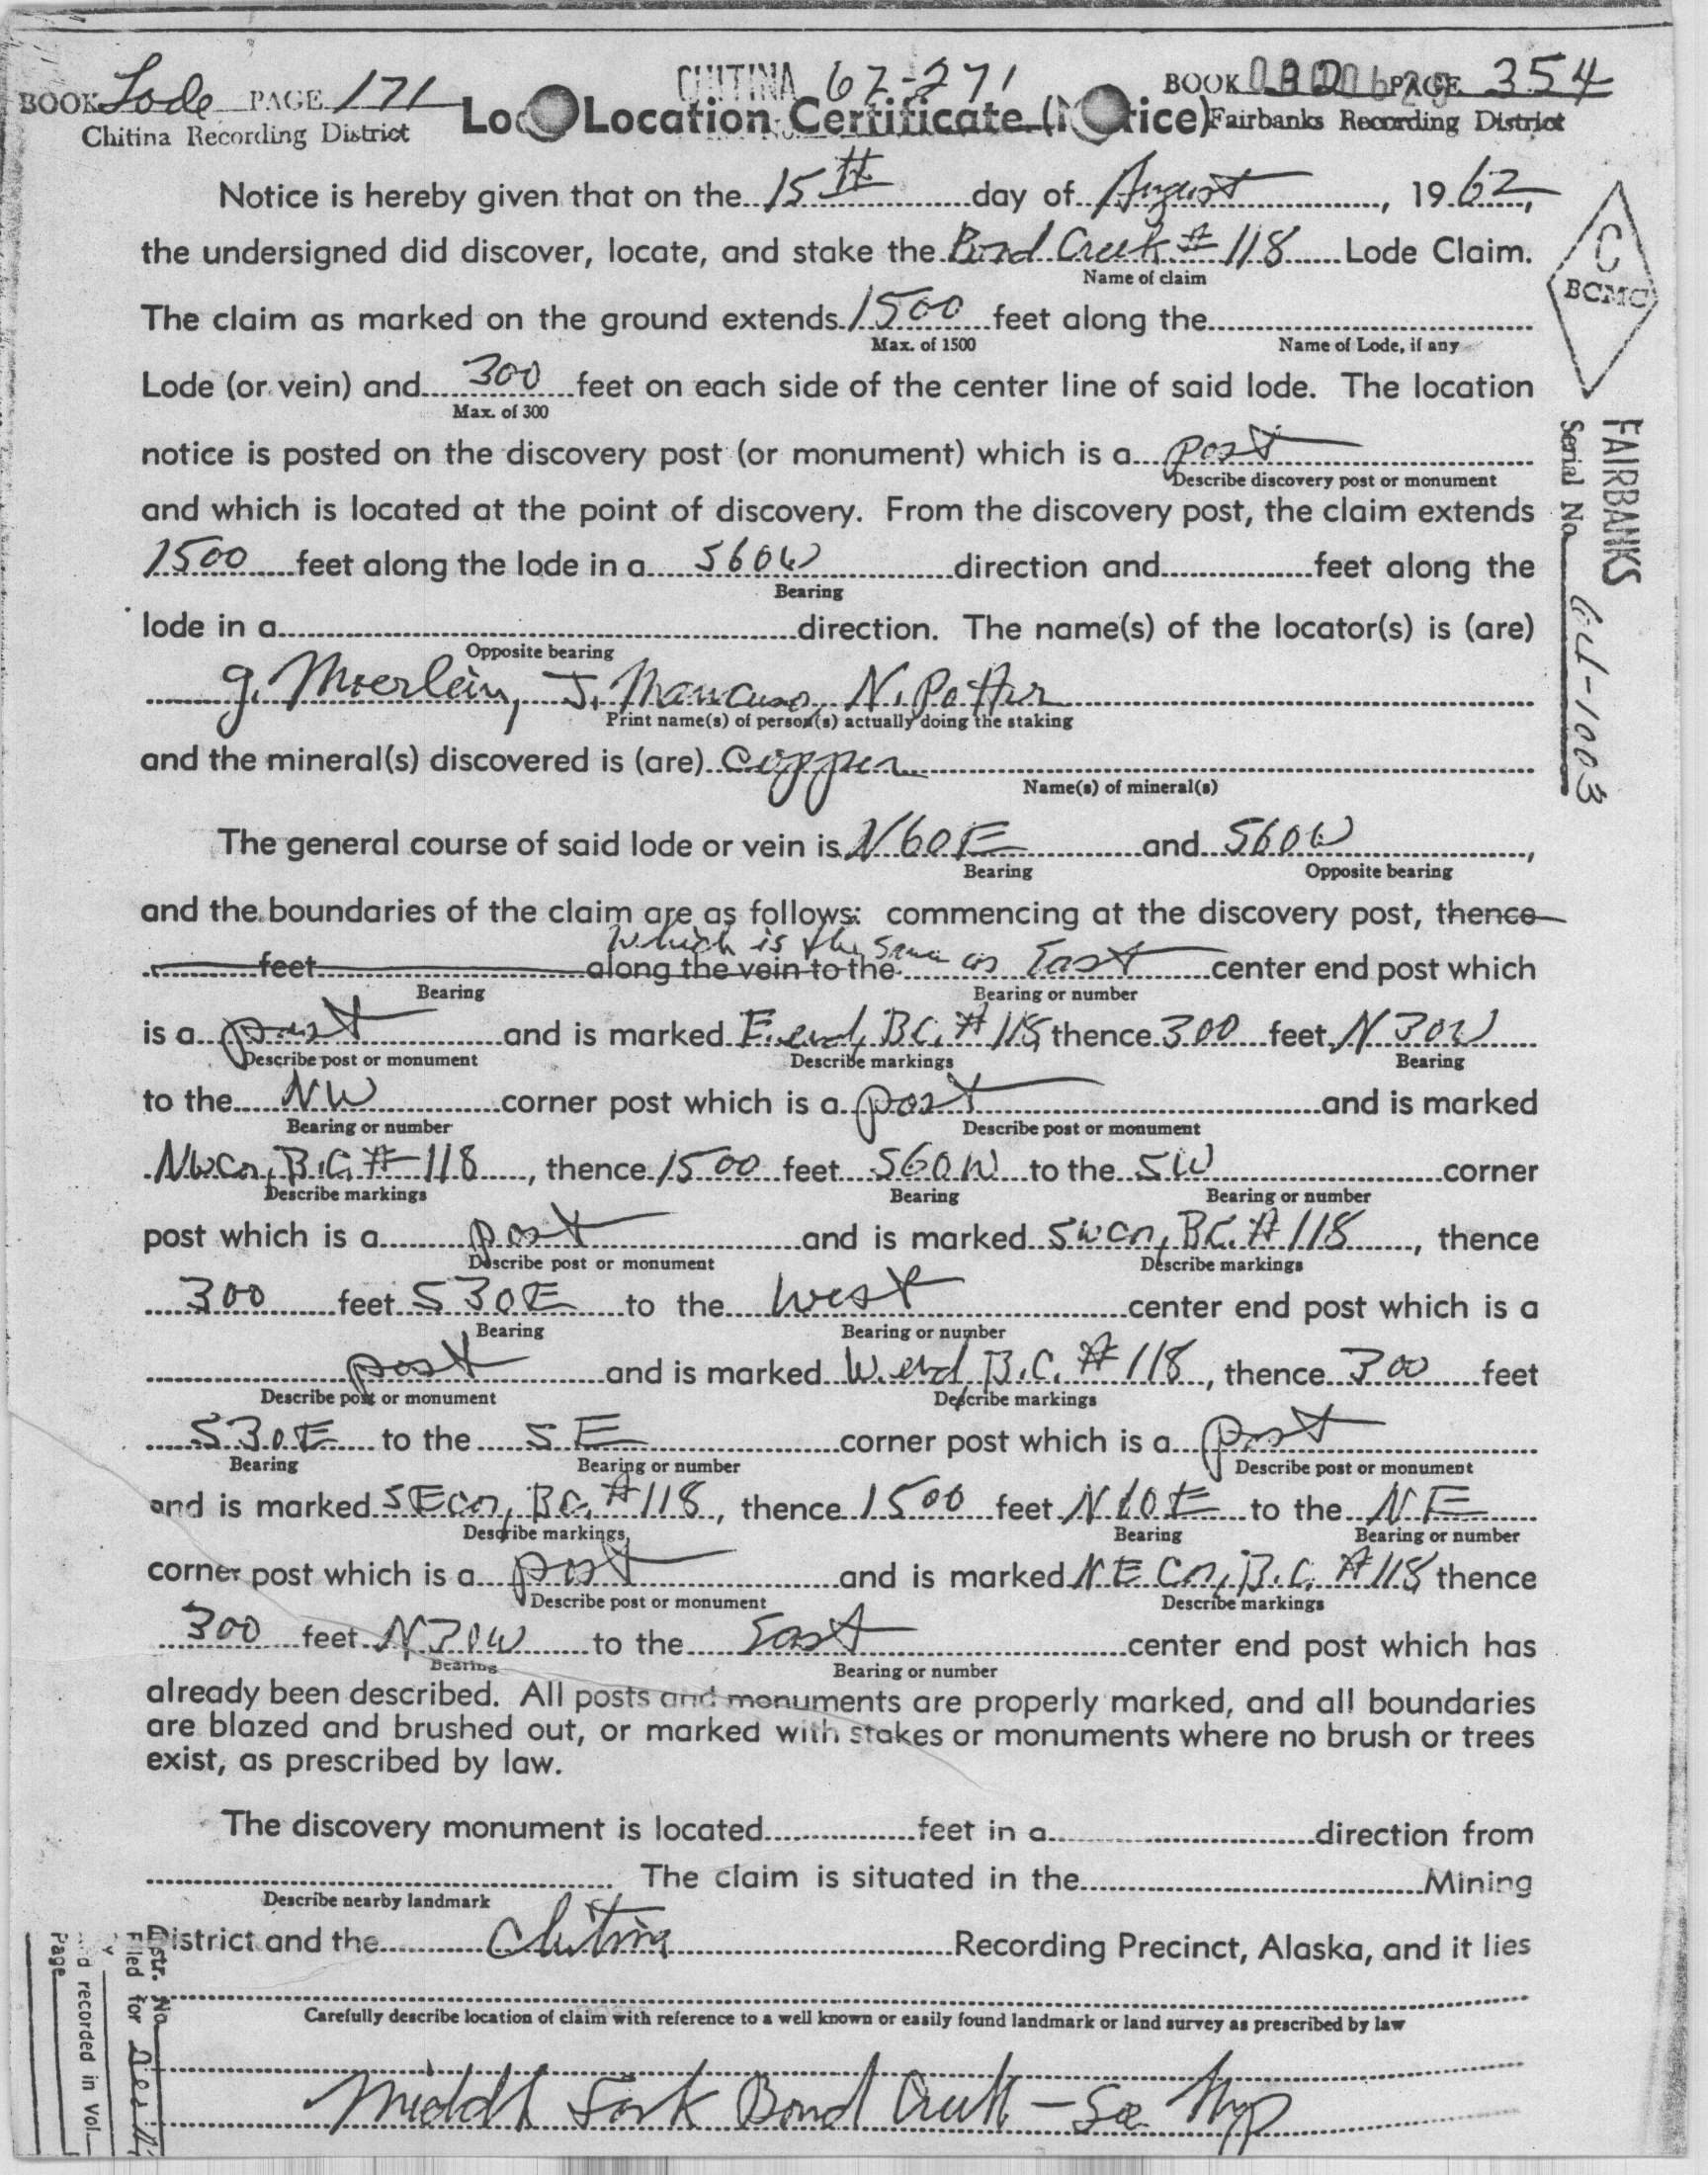 BOOK Lode PAGE 171
Chitina Recording District
CHITINA 62-271
BOOK PAGE 354
Fairbanks Recording District
Location Certificate
Notice is hereby given that on the 15th day of August, 1962,
the undersigned did discover, locate, and stake the Bond Creek #118 Lode Claim.
Name of claim
The claim as marked on the ground extends 1500 feet along the
Max. of 1500 Name of Lode, if any
Lode (or vein) and 300 feet on each side of the center line of said lode. The location
Max. of 300
notice is posted on the discovery post (or monument) which is a post
Describe discovery post or monument
and which is located at the point of discovery. From the discovery post, the claim extends
1500 feet along the lode in a S60W direction and feet along the
Bearing
lode in a direction. The name(s) of the locator(s) is (are)
Opposite bearing
G. Moerlein, J. Mancuso, N. Potter
Print name(s) of person(s) actually doing the staking
and the mineral(s) discovered is (are) Copper
Name(s) of mineral(s)
The general course of said lode or vein is N60E and S60W,
Bearing Opposite bearing
and the boundaries of the claim are as follows: commencing at the discovery post, thence
which is the same as East
feet along the vein to the center end post which
Bearing Bearing or number
is a post and is marked E. end, B.C. #118, thence 300 feet N30W
Describe post or monument Describe markings Bearing
to the NW corner post which is a post and is marked
Bearing or number Describe post or monument
NWCn, B.C. #118, thence 1500 feet S60W to the SW corner
Describe markings Bearing Bearing or number
post which is a post and is marked SWCn, B.C. #118, thence
Describe post or monument Describe markings
300 feet S30E to the West center end post which is a
Bearing Bearing or number
post and is marked W. end B.C. #118, thence 300 feet
Describe post or monument Describe markings
S30E to the SE corner post which is a post
Bearing Bearing or number Describe post or monument
and is marked SECn, B.C. #118, thence 1500 feet N60E to the NE
Describe markings Bearing Bearing or number
corner post which is a post and is marked NE Cn, B.C. #118 thence
Describe post or monument Describe markings
300 feet N30W to the East center end post which has
Bearing Bearing or number
already been described. All posts and monuments are properly marked, and all boundaries
are blazed and brushed out, or marked with stakes or monuments where no brush or trees
exist, as prescribed by law.
The discovery monument is located feet in a direction from
The claim is situated in the Mining
Describe nearby landmark
District and the Chitina Recording Precinct, Alaska, and it lies
Carefully describe location of claim with reference to a well known or easily found landmark or land survey as prescribed by law
Middle Fork Bond Creek - See Map
C
BCMC
FAIRBANKS
Serial No. 64-1003
Instr. No.
Filed for
recorded in Vol.
Page